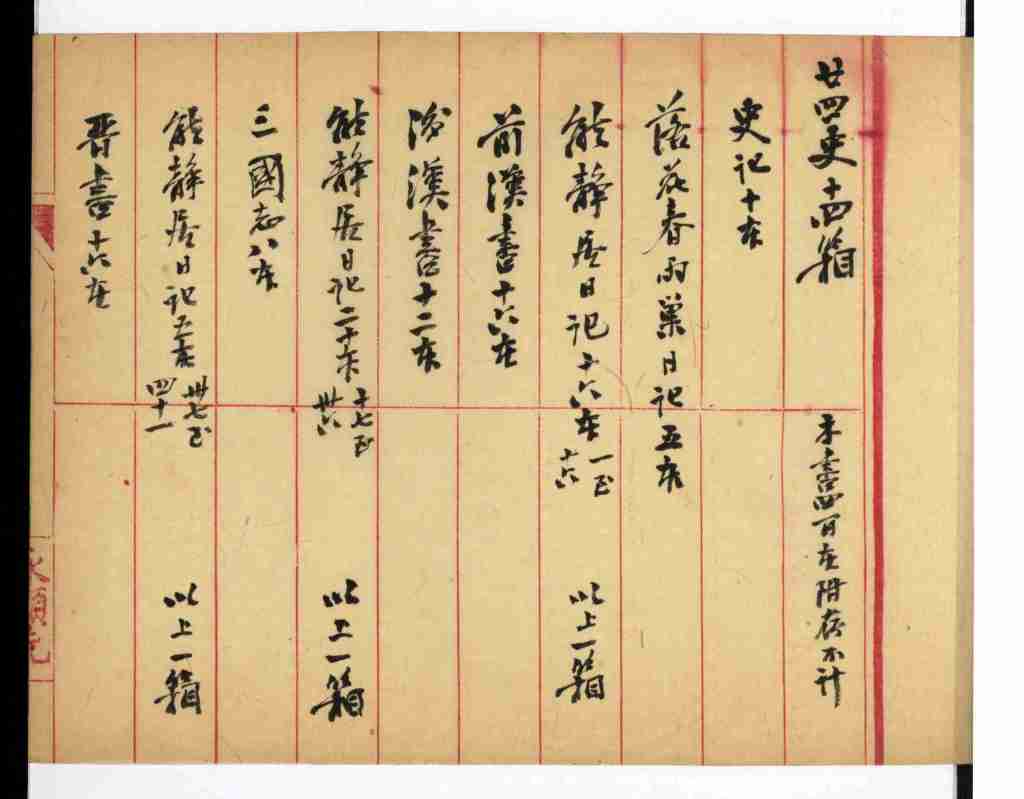 廿四史十四箱　本書四百本附存不計
史記十本
落花春雨巢日記五本
能靜居日記十六本　一至十六　以上一箱
前漢書十六本
後漢書十二本
能靜居日記二十本　十七至卅六　以上一箱
三國志八本
能靜居日記五本　卅七至四十一　以上一箱
晉書十六本